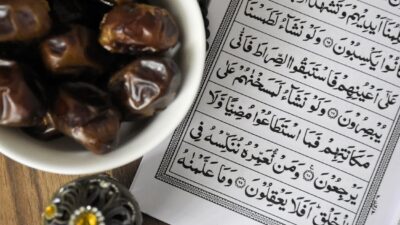 أَيْدِيهِمْ وَتَشْهَدُ
يَكْسِبُونَ ۝ وَلَوْ نَشَاءُ لَطَمَسْنَا
عَلَىٰ أَعْيُنِهِمْ فَاسْتَبَقُوا الصِّرَاطَ فَأَنَّىٰ
يُبْصِرُونَ ۝ وَلَوْ نَشَاءُ لَمَسَخْنٰهُمْ عَلَىٰ
مَكَانَتِهِمْ فَمَا اسْتَطَاعُوا مُضِيًّا وَلَا
يَرْجِعُونَ ۝ وَمَنْ نُعَمِّرْهُ نُنَكِّسْهُ فِي
الْخَلْقِ أَفَلَا يَعْقِلُونَ ۝ وَمَا عَلَّمْنٰهُ